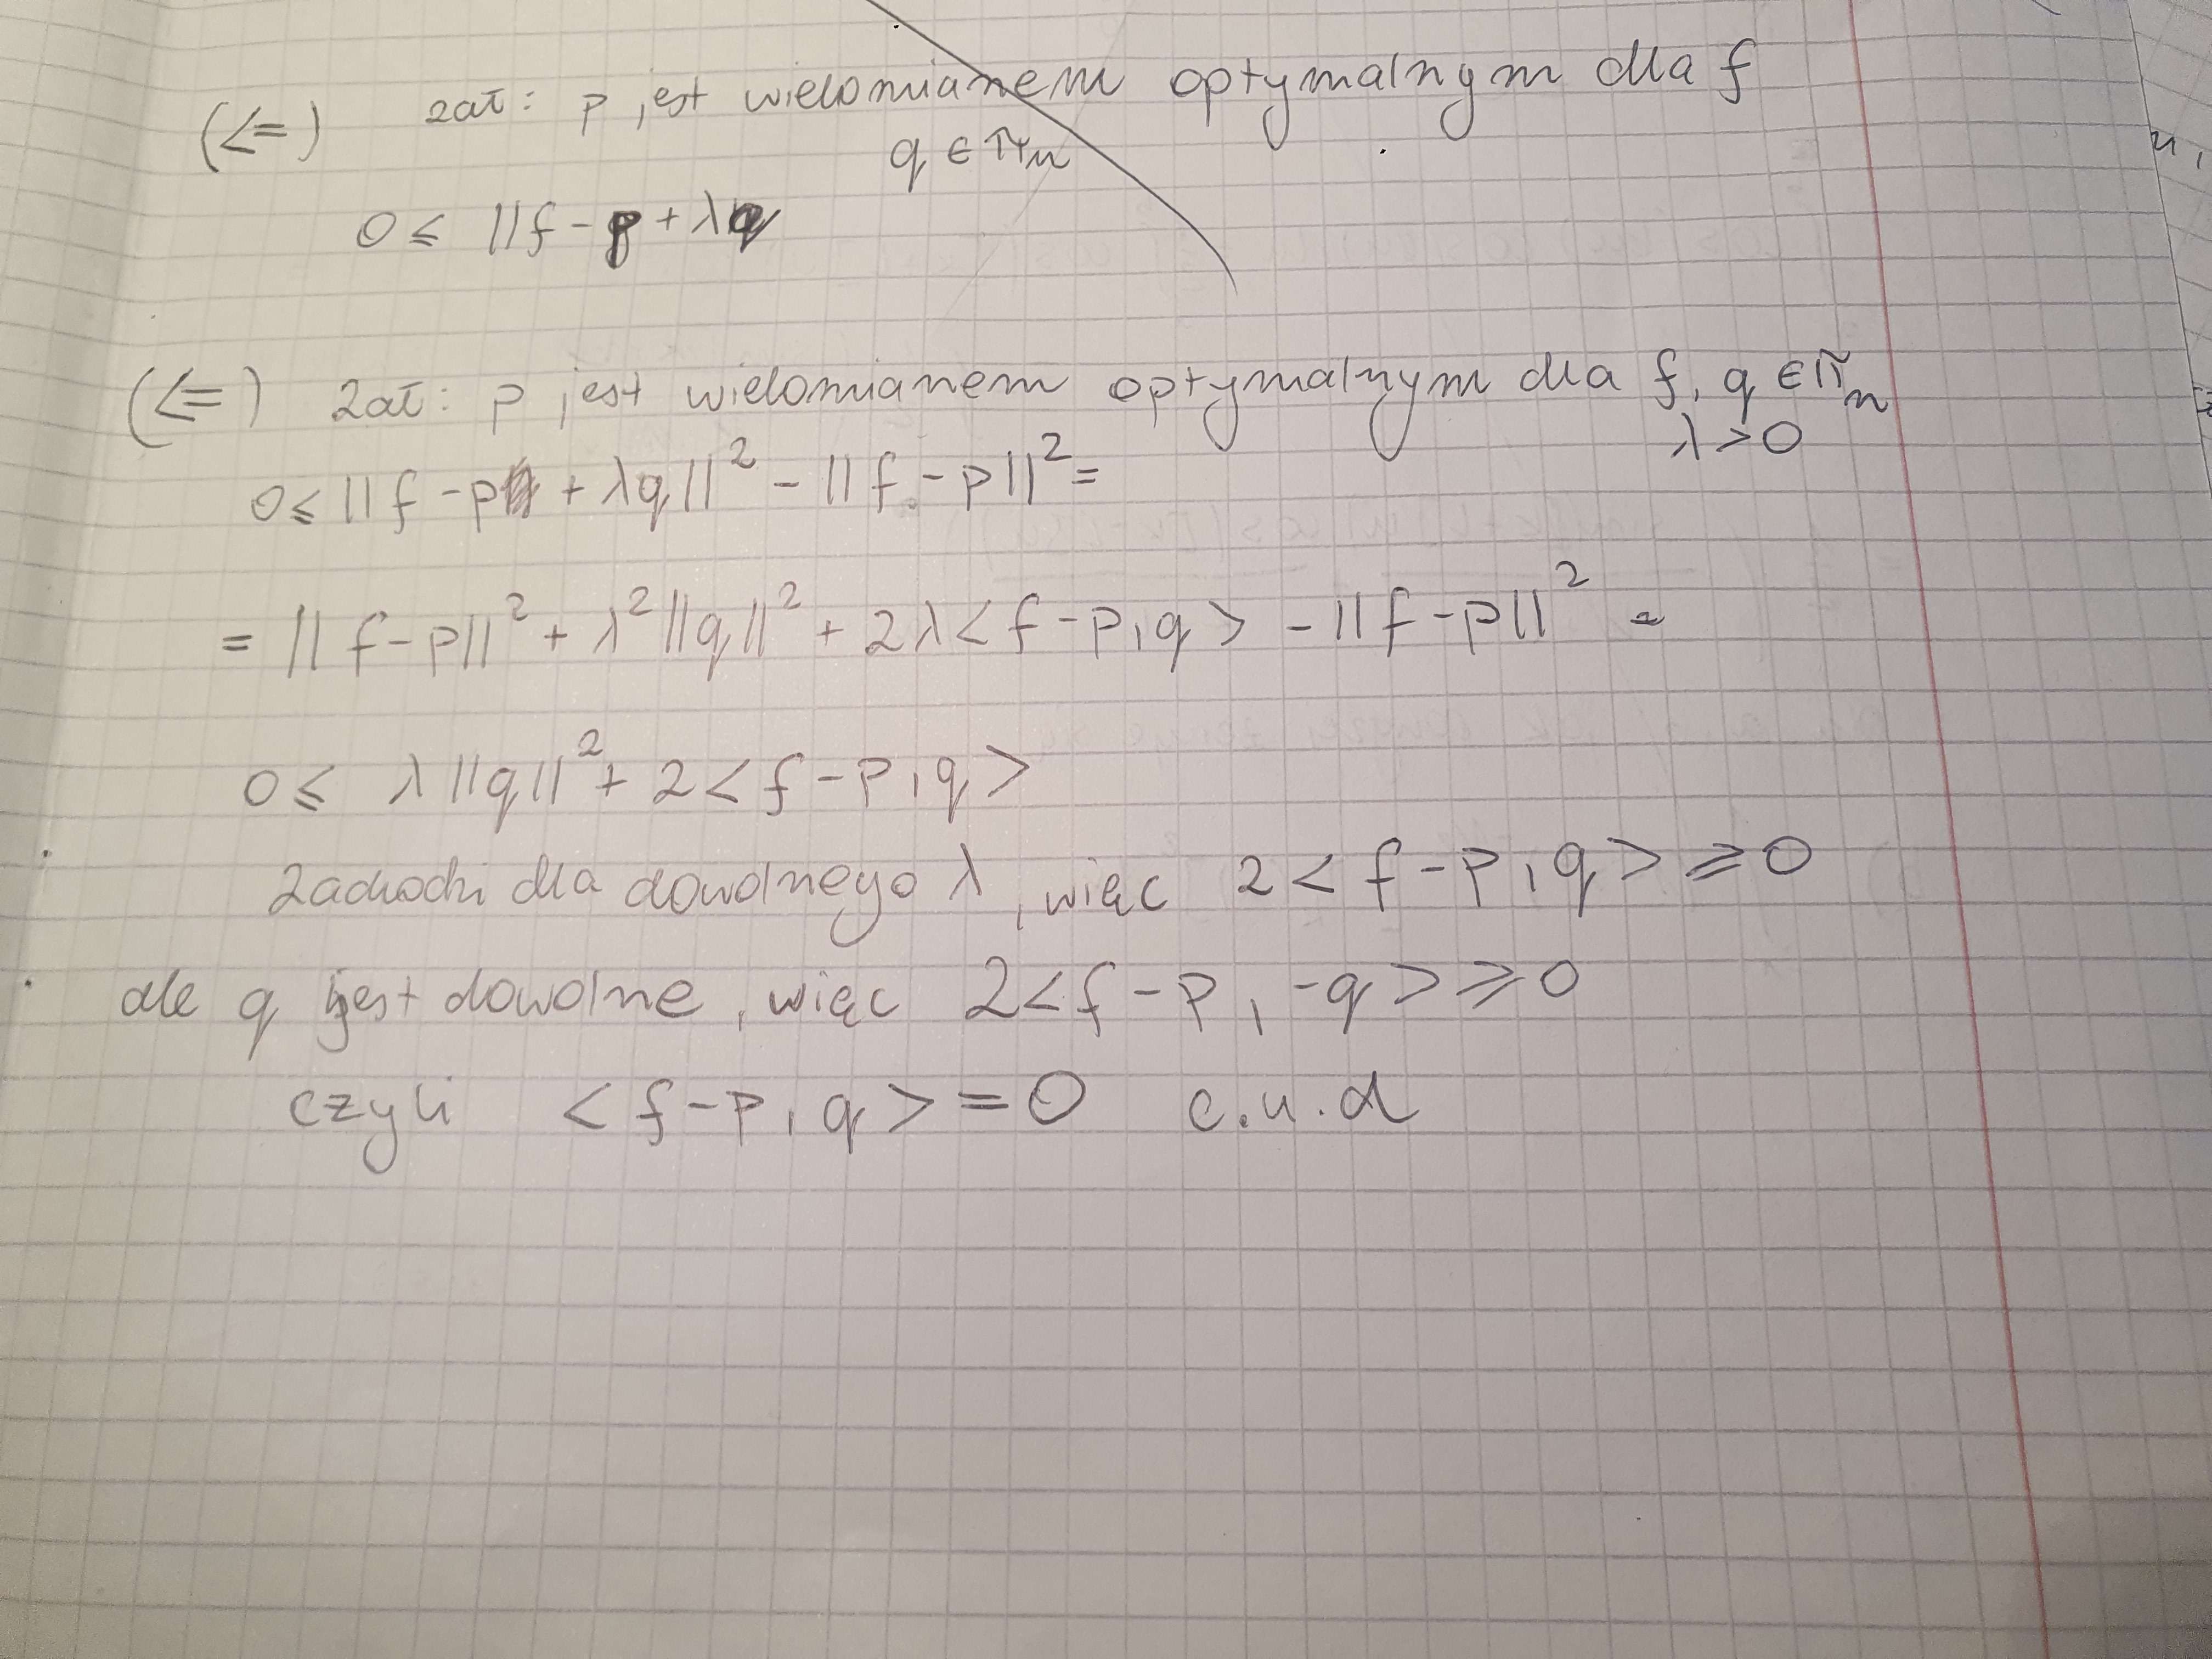 (<=) zał: p jest wielomianem optymalnym dla f
q ∈ Πn
0 ≤ ||f - p + λq
(<=) zał: p jest wielomianem optymalnym dla f, q ∈ Πn
λ > 0
0 ≤ ||f - p + λq||² - ||f - p||² =
= ||f - p||² + λ²||q||² + 2λ<f - p, q> - ||f - p||² =
0 ≤ λ||q||² + 2<f - p, q>
zachodzi dla dowolnego λ, więc 2<f - p, q> ≥ 0
ale q jest dowolne, więc 2<f - p, -q> ≥ 0
czyli <f - p, q> = 0 c.n.d